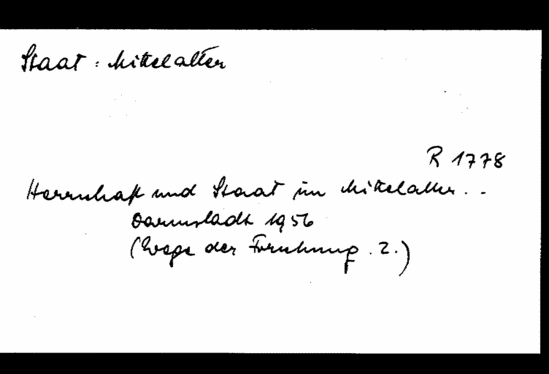 Staat : Mittelalter
R 1778
Herrschaft und Staat im Mittelalter . .
Darmstadt 1956
(Wege der Forschung . 2.)